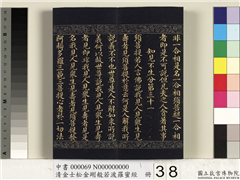 非一合相是名一合相須菩提一合相
者即是不可說但凡夫之人貪著其事
知見不生分第三十一
須菩提若人言佛說我見人見眾生見
壽者見須菩提於意云何是人解我所
說義不不也世尊是人不解如來所說
義何以故世尊說我見人見眾生見壽
者見即非我見人見眾生見壽者見是
名我見人見眾生見壽者見須菩提發阿
耨多羅三藐三菩提心者於一切法
中書 000069 N000000000
清金士松金剛般若波羅蜜經 冊 38
國立故宮博物院